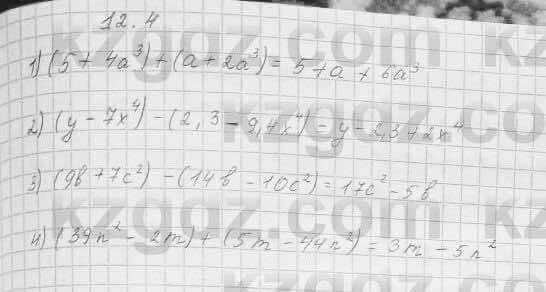 12.4
1) (5 + 4a³) + (a + 2a³) = 5 + a + 6a³
2) (y - 7x⁴) - (2,3 - 9,4x⁴) = y - 2,3 + 2x⁴
3) (9b + 7c²) - (14b - 10c²) = 17c² - 5b
4) (39n² - 2m) + (5m - 44n²) = 3m - 5n²